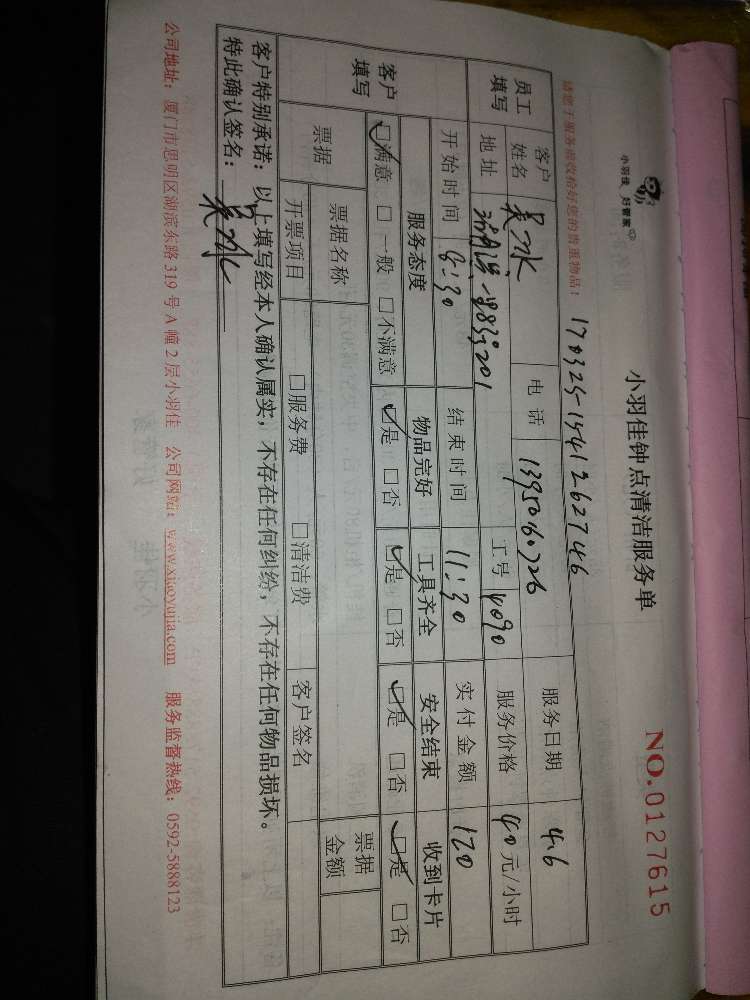 小羽佳 好管家
小羽佳钟点清洁服务单
NO.0127615
请您于服务前收拾好您的贵重物品！
170325-15412627 46
员工填写 客户姓名 吴 水 电话 服务日期 4.6
地址 号201 工号 4090 服务价格 40元/小时
开始时间 8:30 结束时间 11:30 实付金额 120
客户填写 服务态度 物品完好 工具齐全 安全结束 收到卡片
☑满意 □一般 □不满意 ☑是 □否 ☑是 □否 ☑是 □否 ☑是 □否
票据 票据名称 票据金额
开票项目 □服务费 □清洁费 客户签名
客户特别承诺：以上填写经本人确认属实，不存在任何纠纷，不存在任何物品损坏。
特此确认签名：吴 水
公司地址：厦门市思明区湖滨东路319号A幢2层小羽佳 公司网站：www.xiaoyujia.com 服务监督热线：0592-5888123